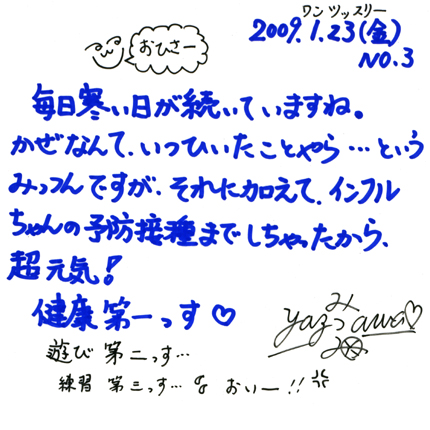 ワン ツッスリー
2009.1.23(金)
NO.3
おひさー
毎日寒い日が続いていますね。
かぜなんて、いつひいたことやら…という
みっつんですが、それに加えて、インフル
ちゃんの予防接種までしちゃったから、
超元気!
健康第一っす♡
遊び 第二っす…
練習 第三っす… な おいー!!
みっ
yazawa♡